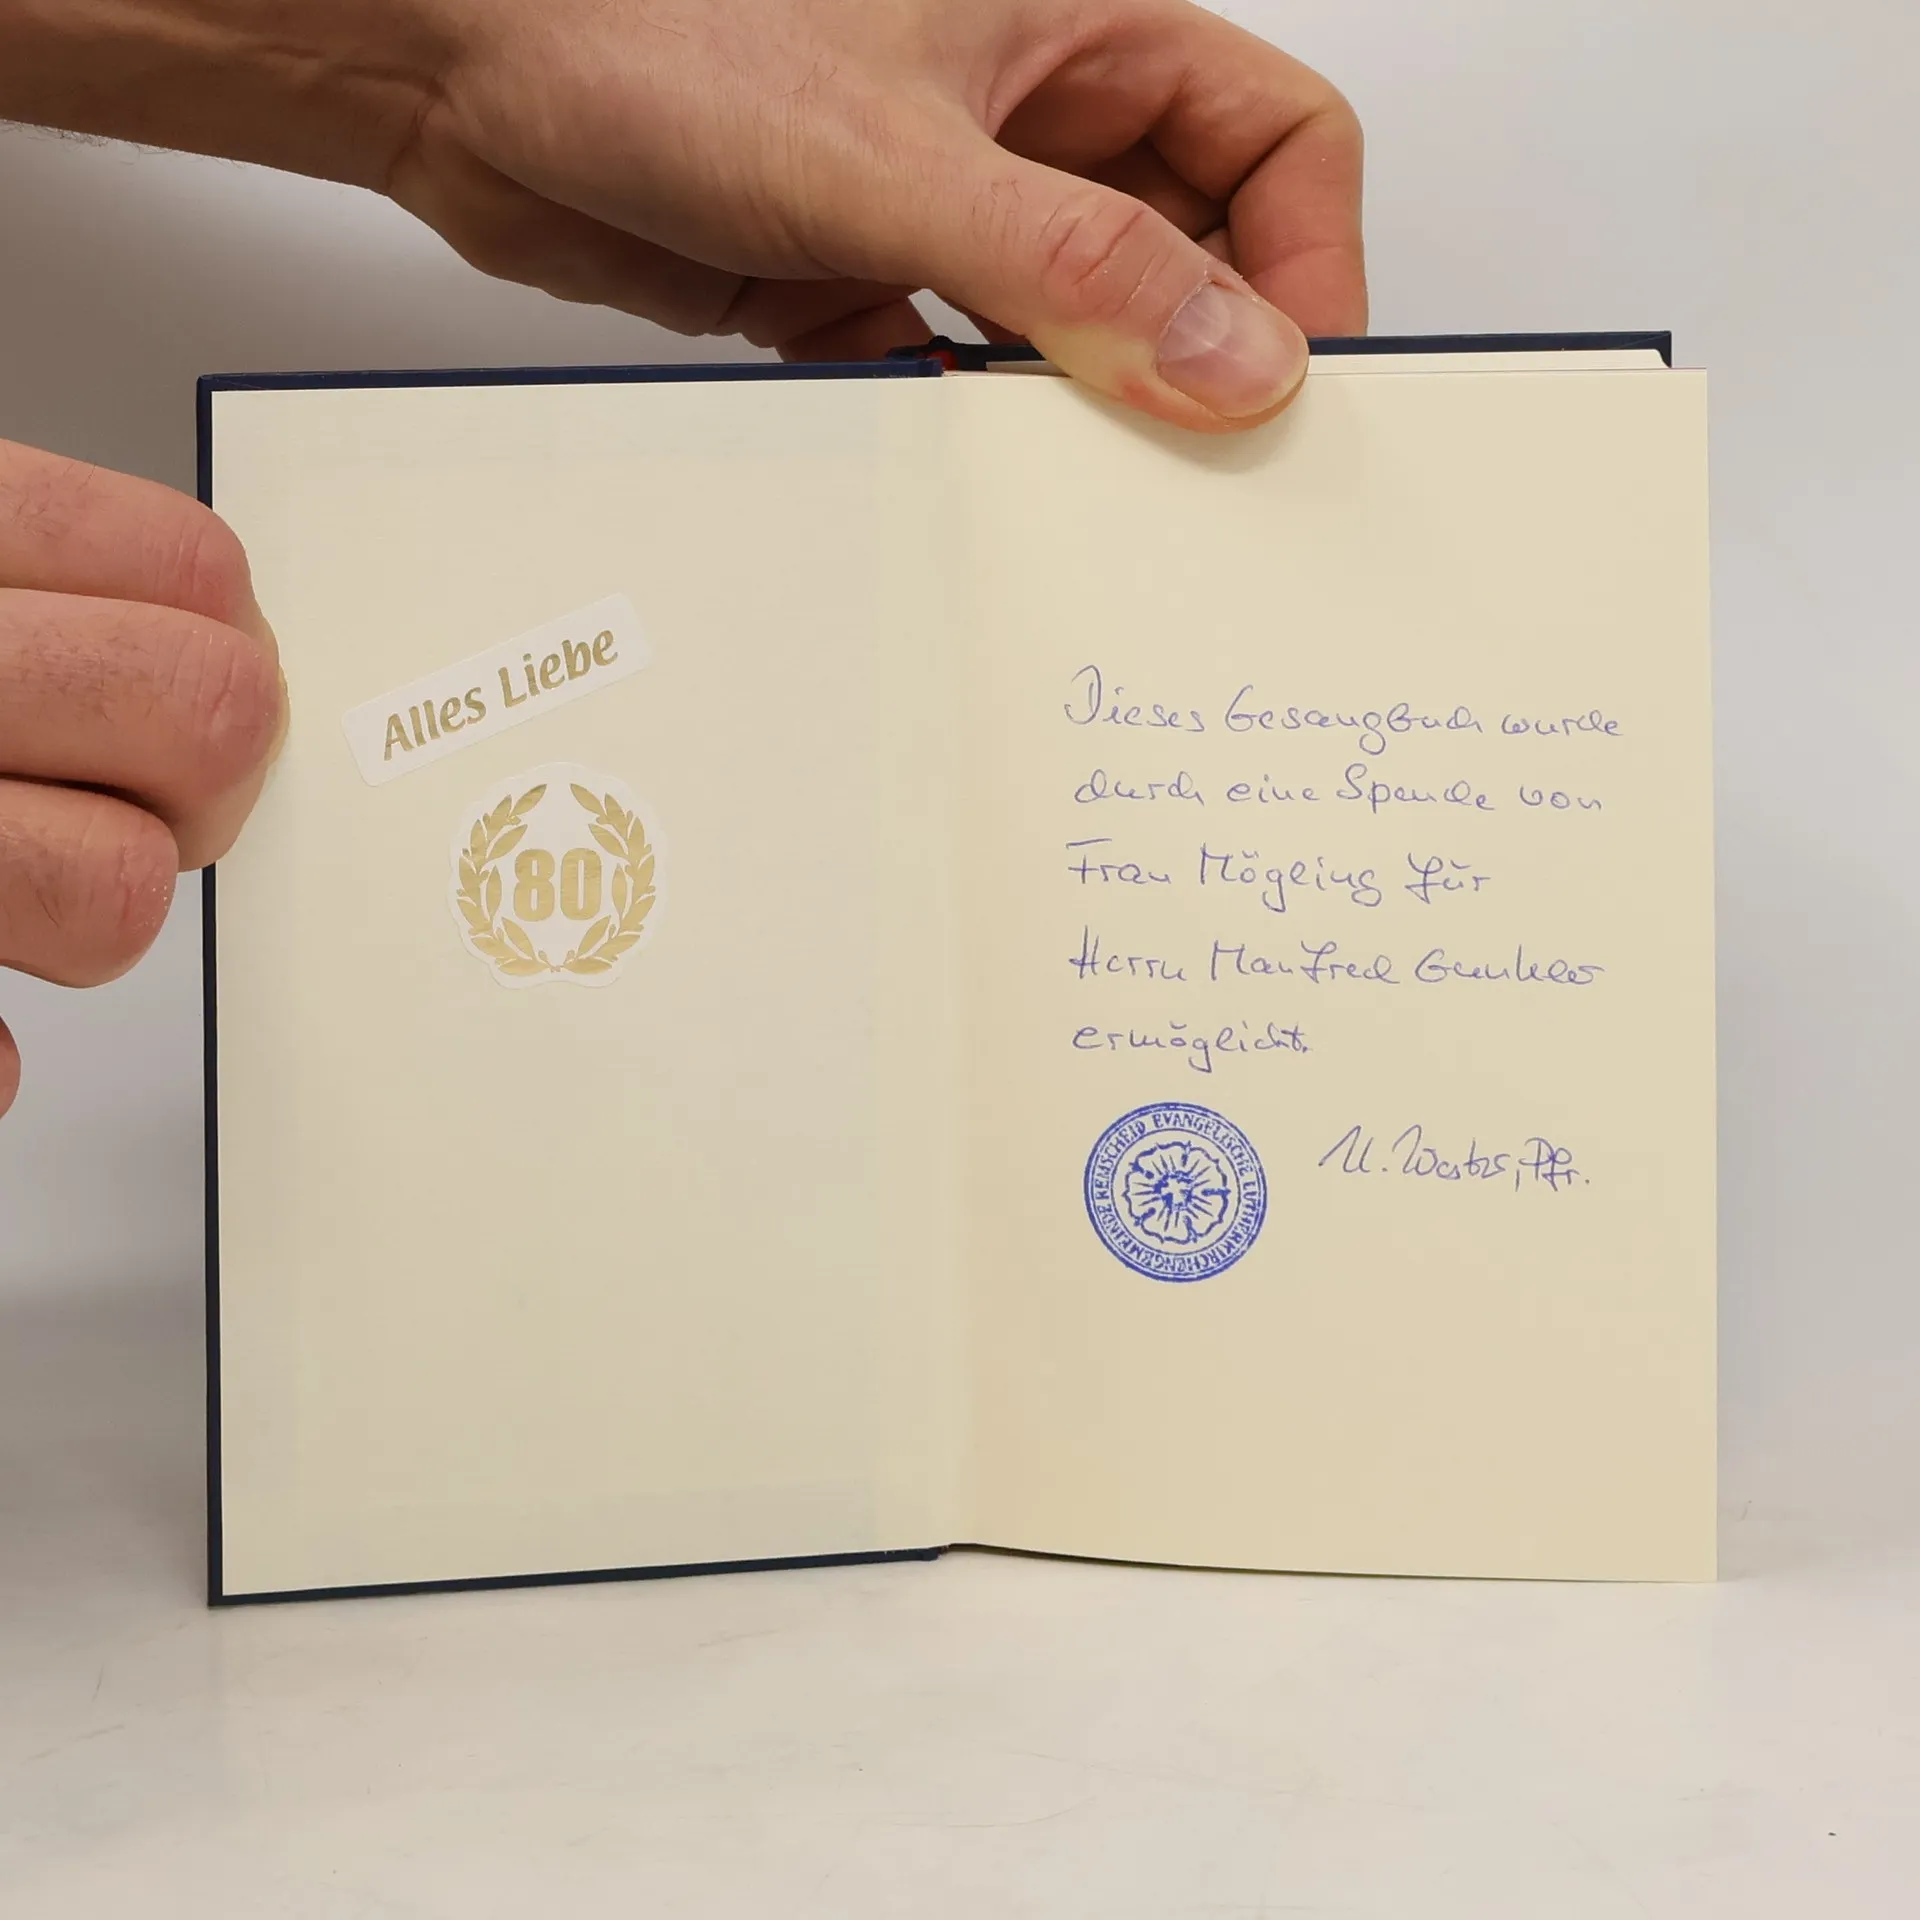 Alles Liebe
80
Dieses Gesangbuch wurde
durch eine Spende von
Frau Mögling für
Herrn Manfred Gunkler
ermöglicht.
EVANGELISCHE LUTHERKIRCHENGEMEINDE REMSCHEID
U. , Pfr.